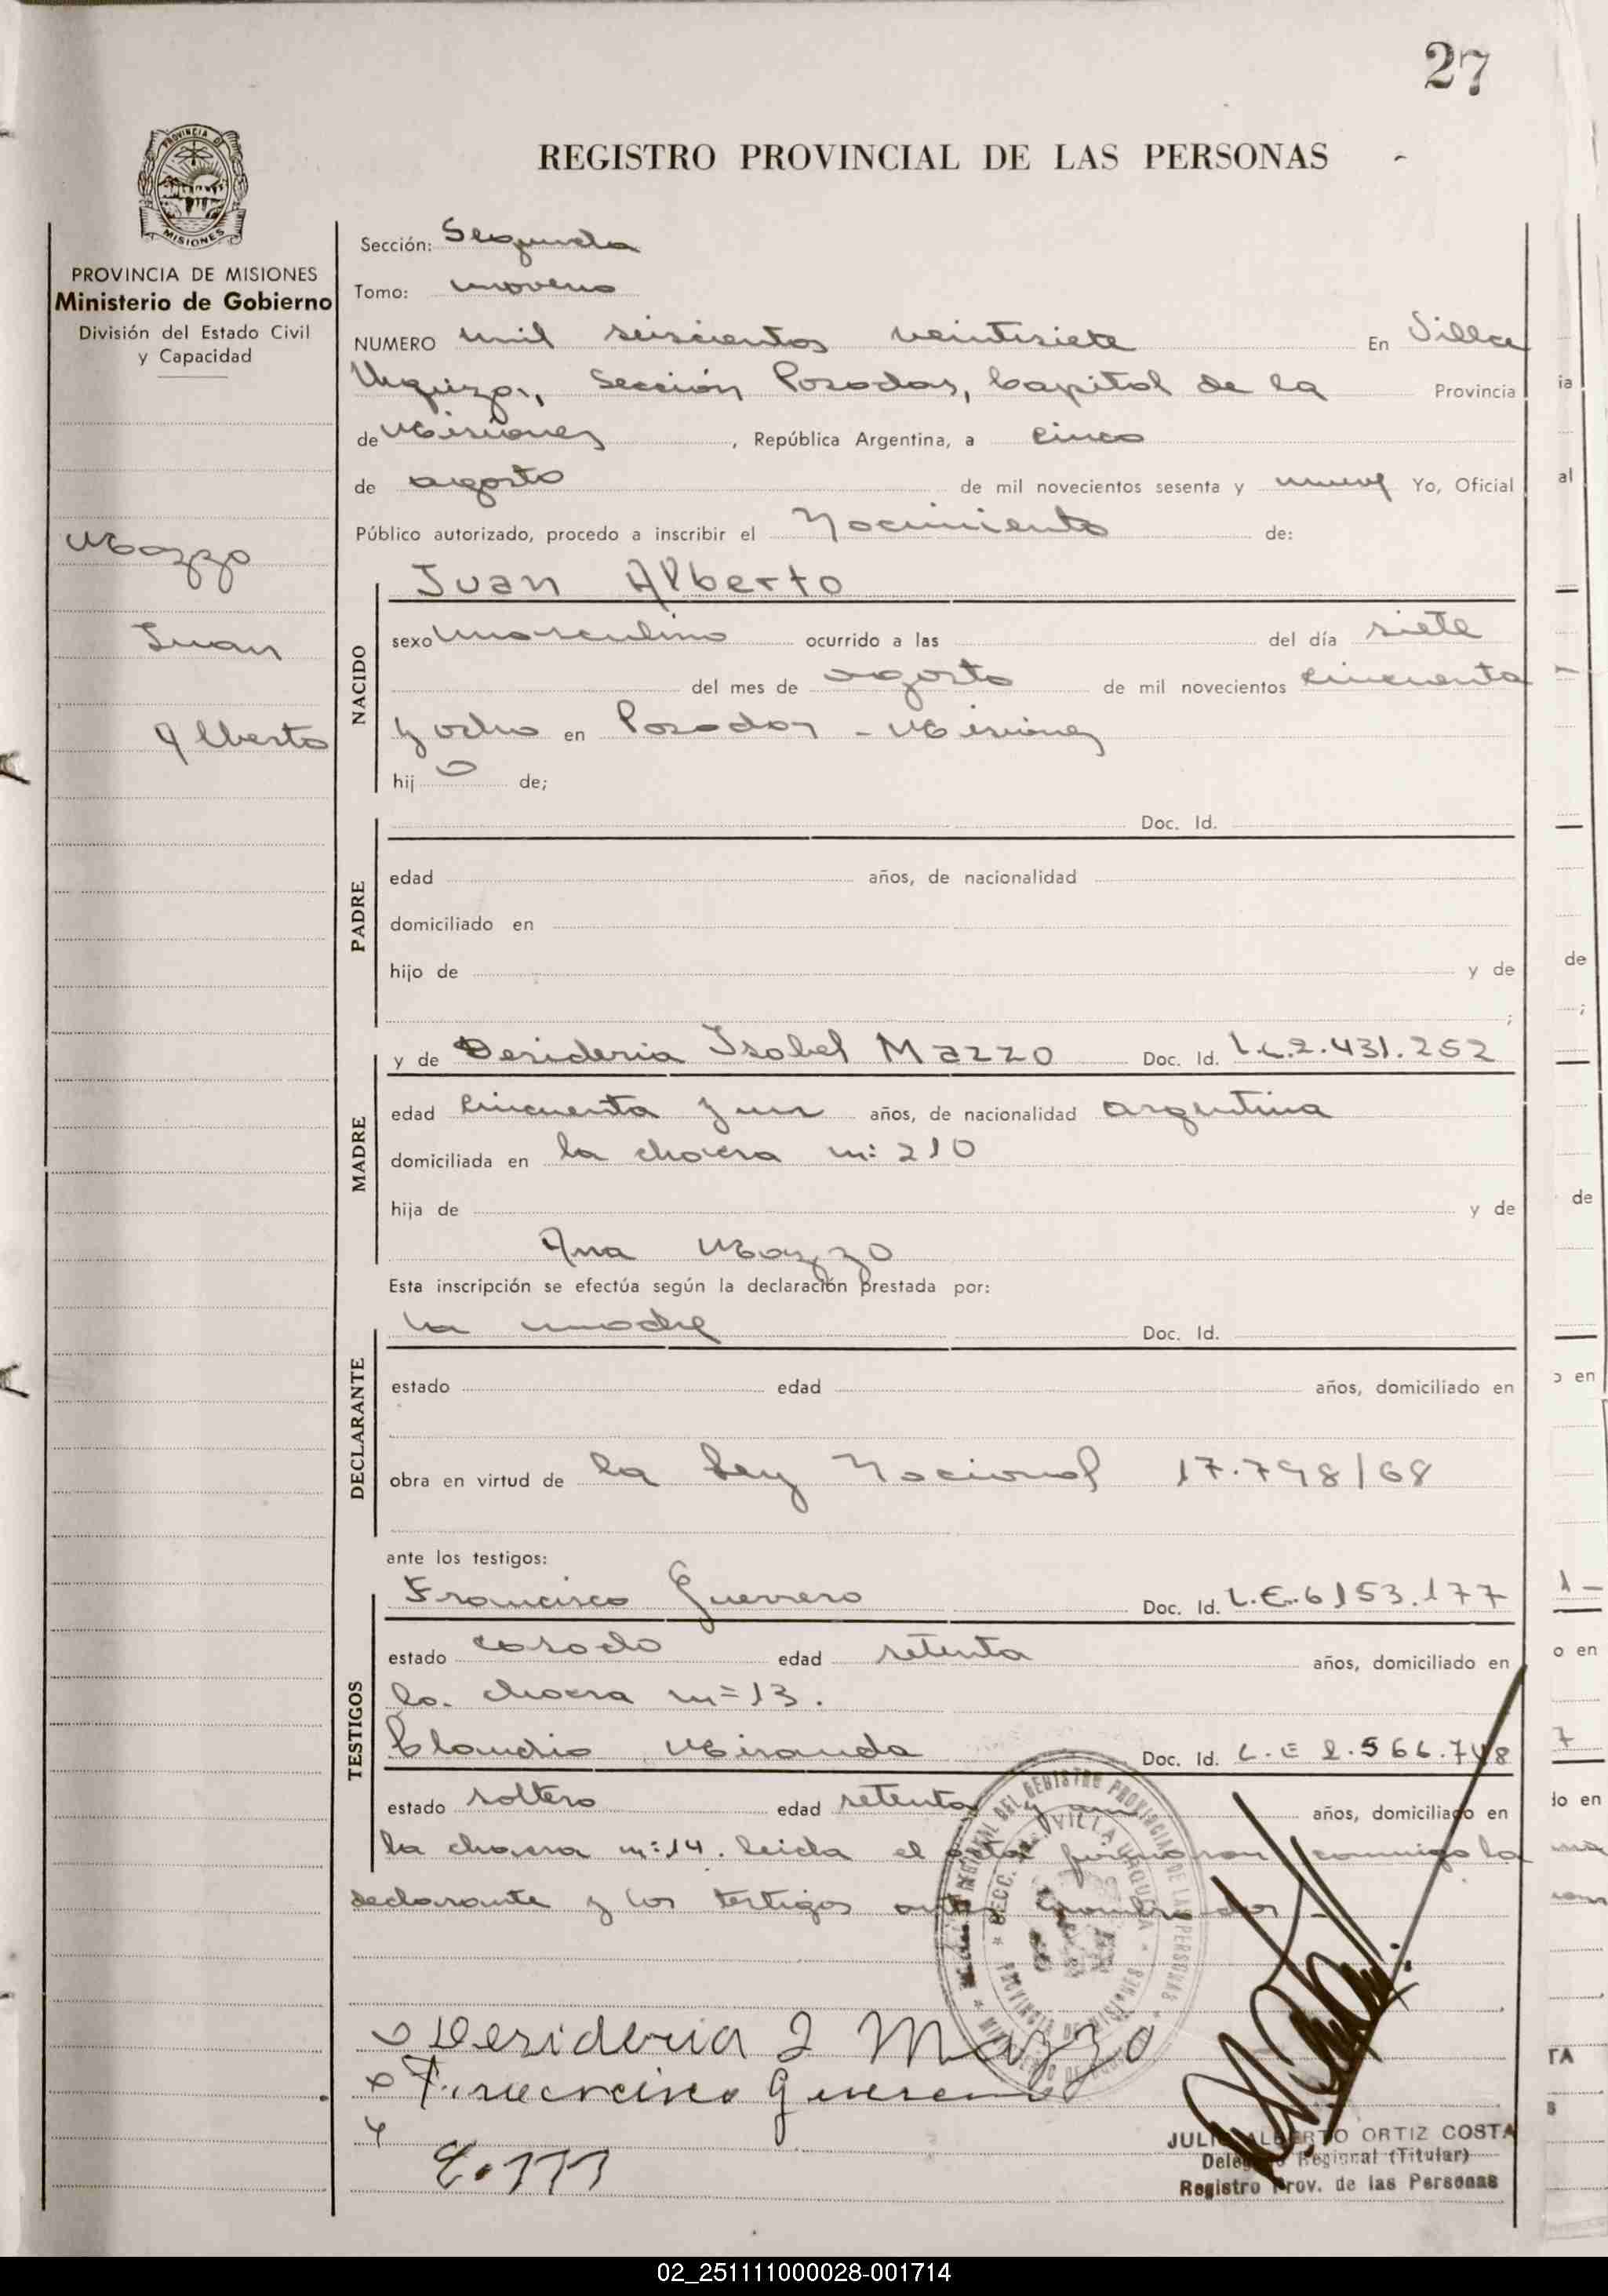 27
REGISTRO PROVINCIAL DE LAS PERSONAS
PROVINCIA DE
MISIONES
PROVINCIA DE MISIONES
Ministerio de Gobierno
División del Estado Civil
y Capacidad
Mazzo
Juan
Alberto
Sección: Segunda
Tomo: noveno
NUMERO mil seiscientos veintisiete En Villa
Urquiza, Sección Posadas, Capital de la Provincia
de Misiones, República Argentina, a cinco
de agosto de mil novecientos sesenta y nueve Yo, Oficial
Público autorizado, procedo a inscribir el Nacimiento de:
NACIDO
Juan Alberto
sexo masculino ocurrido a las del día siete
del mes de agosto de mil novecientos cincuenta
y ocho en Posadas - Misiones
hij o de;
PADRE
Doc. Id.
edad años, de nacionalidad
domiciliado en
hijo de y de
;
MADRE
y de Desideria Isabel Mazzo Doc. Id. L.C.2.431.252
edad cincuenta y un años, de nacionalidad argentina
domiciliada en la chacra n: 210
hija de y de
Ana Mazzo
Esta inscripción se efectúa según la declaración prestada por:
DECLARANTE
la madre Doc. Id.
estado edad años, domiciliado en
obra en virtud de la Ley Nacional 17.798/68
ante los testigos:
TESTIGOS
Francisco Guerrero Doc. Id. L.E.6153.177
estado casado edad setenta años, domiciliado en
la chacra n=13.
Claudio Miranda Doc. Id. L.E 2.566.748
estado soltero edad setenta y un años, domiciliado en
la chacra n:14. leida el acta firmaron conmigo la
declarante y los testigos antes nombrados -
Desideria I Mazzo
Francisco Guerrero
JULIO ALBERTO ORTIZ COSTA
Delegado Regional (Titular)
Registro Prov. de las Personas
REGIONAL DEL REGISTRO PROVINCIAL DE LAS PERSONAS
SECC. VILLA URQUIZA
PROVINCIA DE MISIONES
ia
al
de
;
de
o en
o en
7
do en
TA
S
02_251111000028-001714